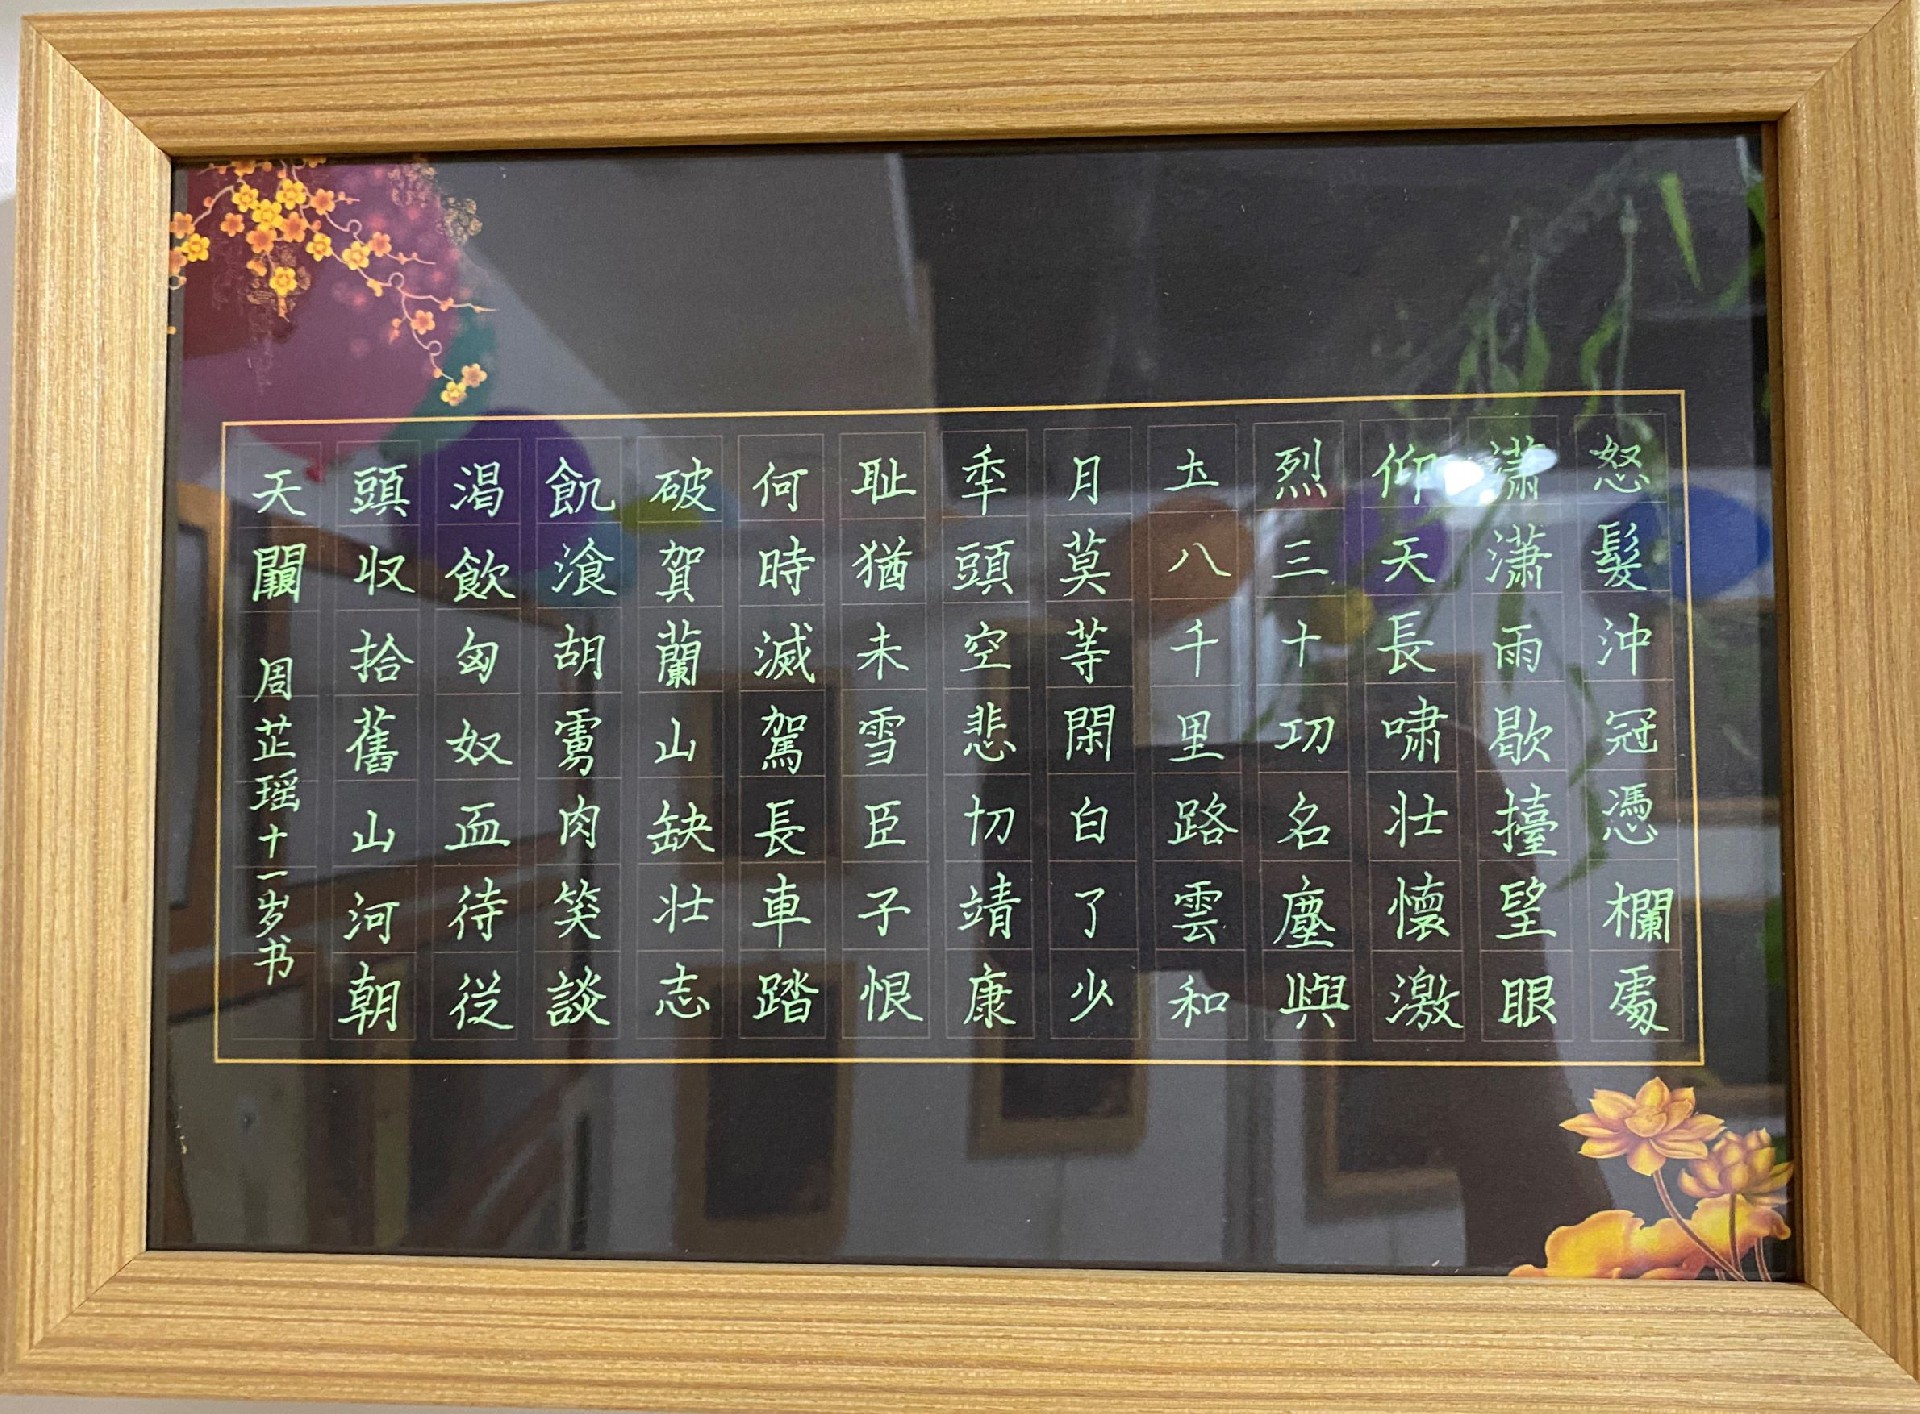 怒髮沖冠憑欄處
潇潇雨歇擡望眼
仰天長啸壮懷激
烈三十功名塵與
土八千里路雲和
月莫等閑白了少
年頭空悲切靖康
耻猶未雪臣子恨
何時滅駕長車踏
破賀蘭山缺壮志
飢飡胡虜肉笑談
渴飲匈奴血待從
頭収拾舊山河朝
天闕 周芷瑶十一岁书